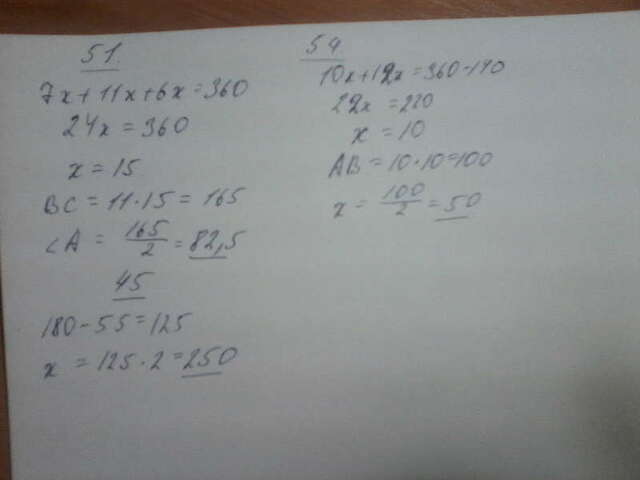 51.
7x+11x+6x=360
24x=360
x=15
BC=11·15=165
∠A=165/2=82,5
45
180-55=125
x=125·2=250
54
10x+12x=360-140
22x=220
x=10
AB=10·10=100
x=100/2=50